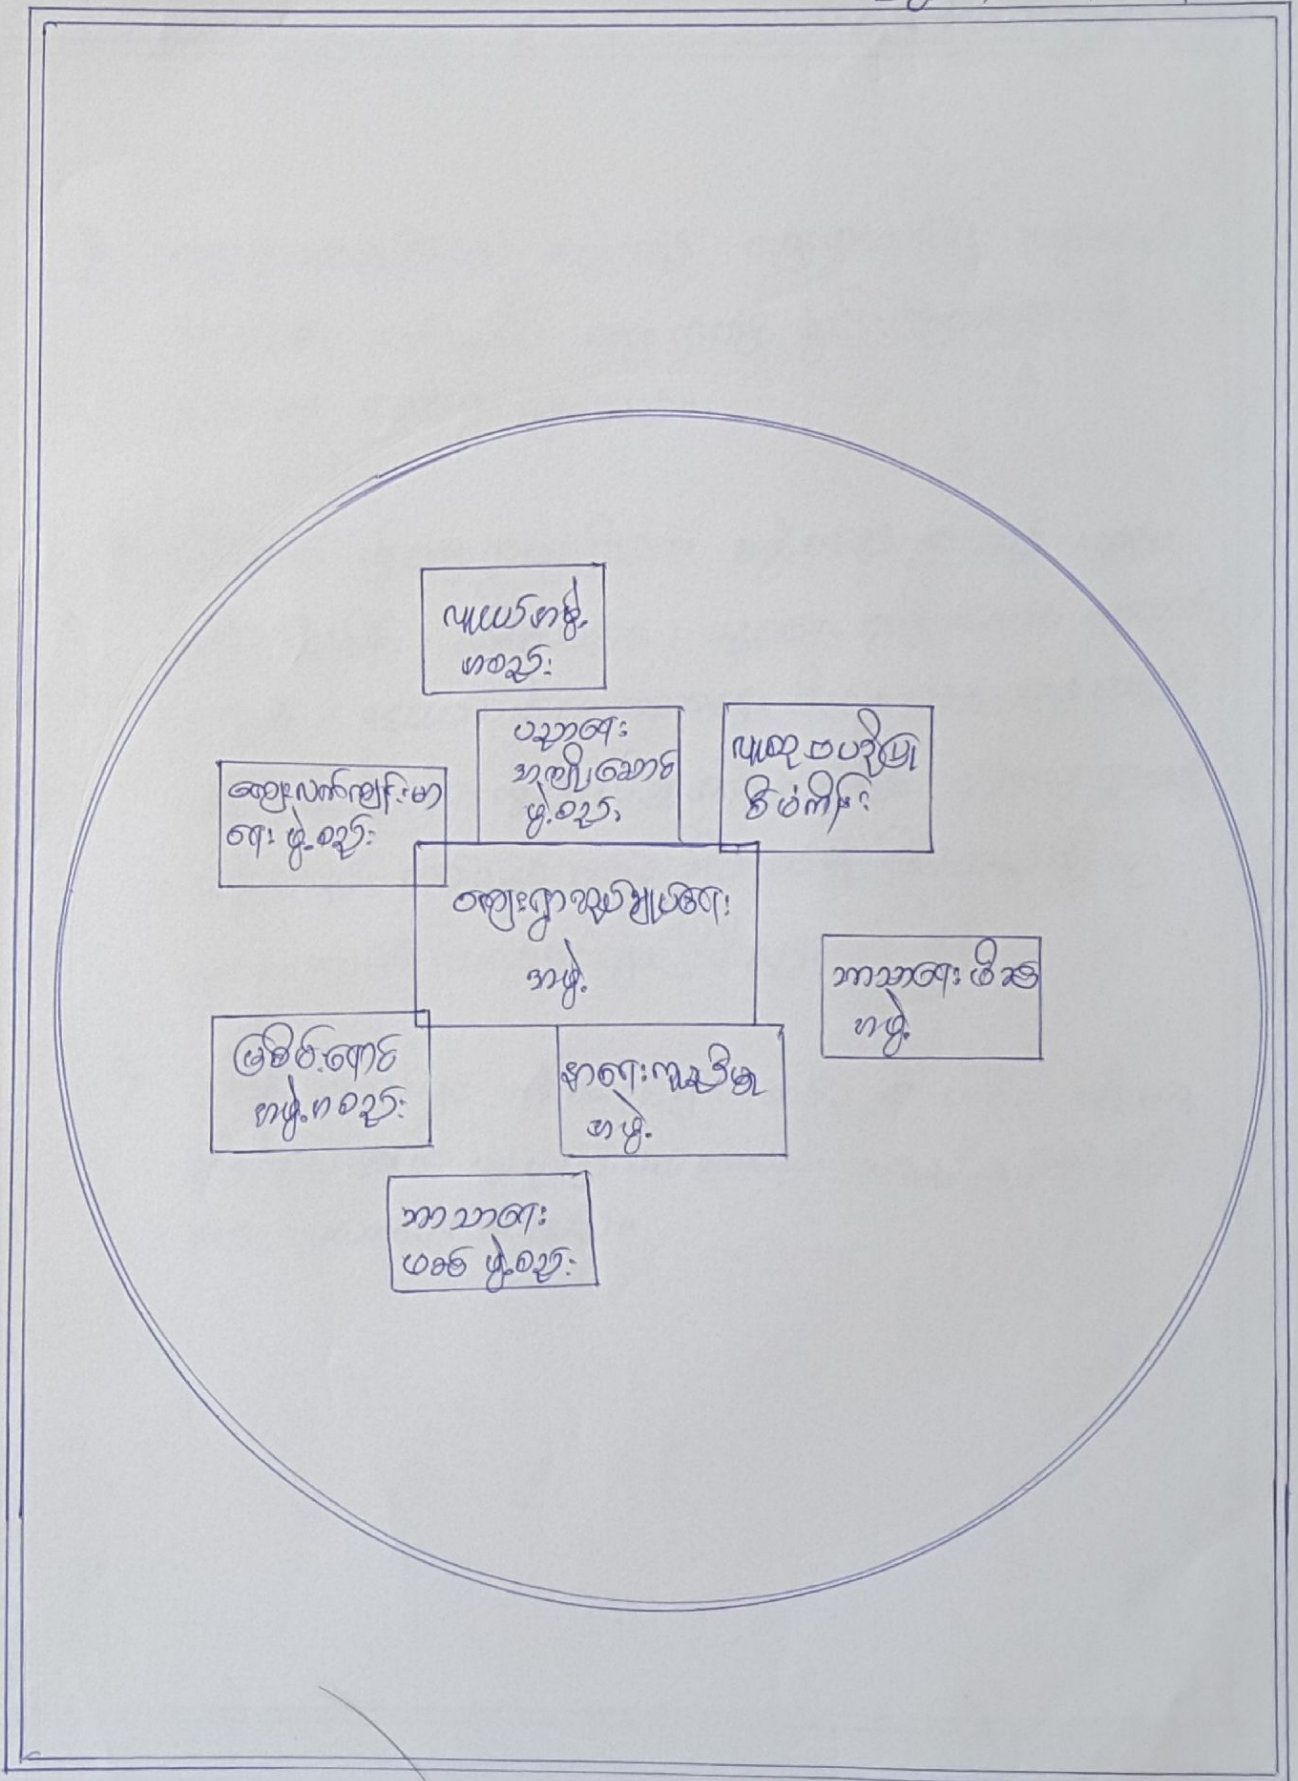 လူငယ်အဖွဲ့
အစည်း
ပညာရေး
အကျိုးဆောင်
ဖွဲ့စည်း
လူထုဗဟိုပြု
စီမံကိန်း
ကျေးလက်ကျန်းမာ
ရေး ဖွဲ့စည်း
ကျေးရွာအုပ်ချုပ်ရေး
အဖွဲ့
ဘာသာရေး
အဖွဲ့
မြစိမ်းရောင်
အဖွဲ့အစည်း
နာရေးကူညီမှု
အဖွဲ့
ဘာသာရေး
ဖွဲ့စည်း